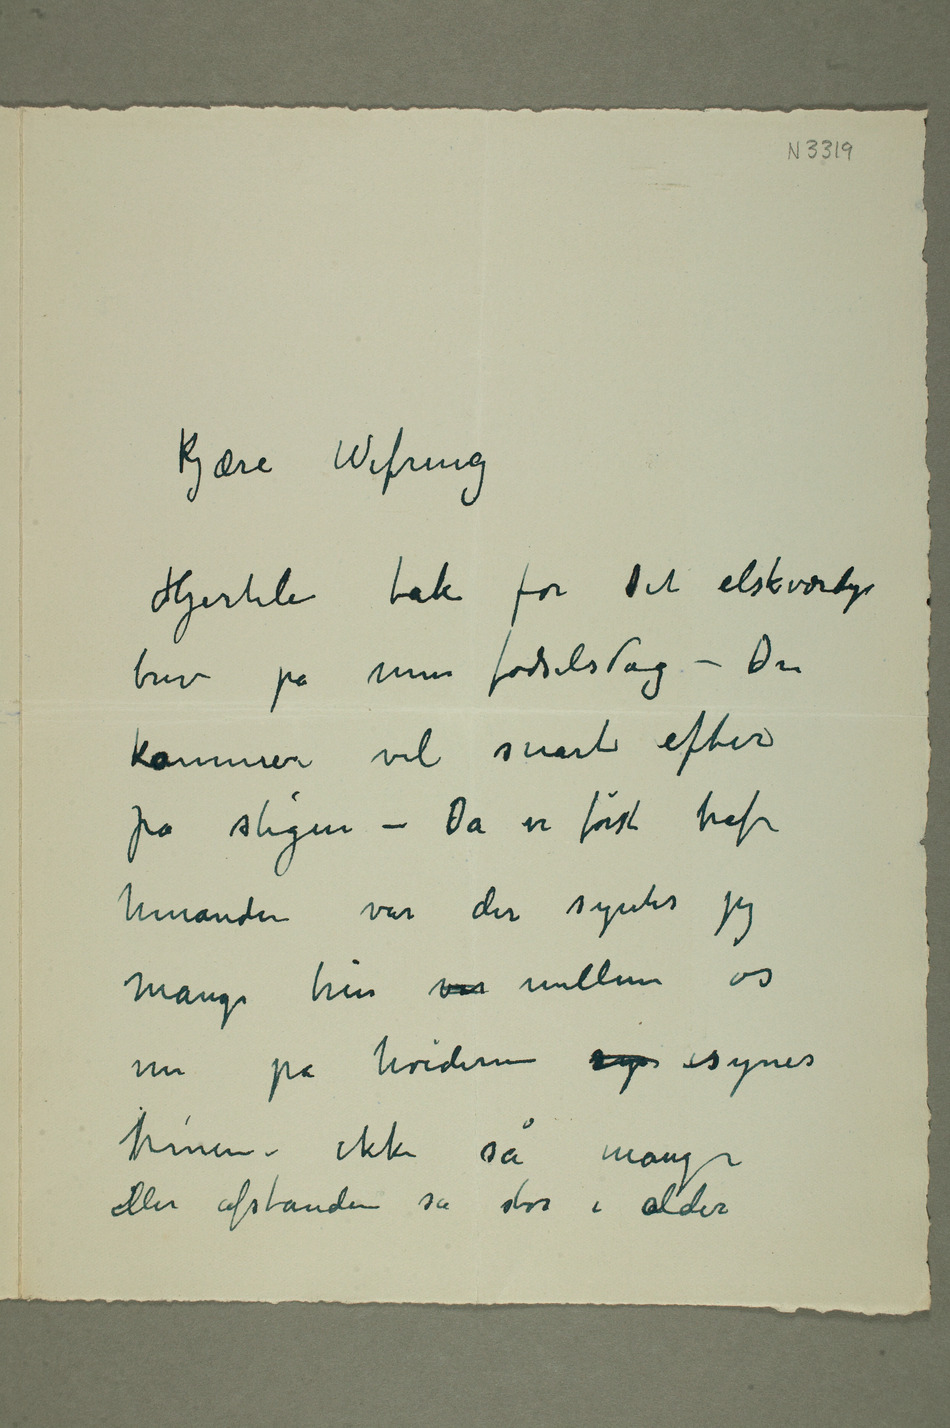 N 3319
Kjære Wefring
Hjertelig tak for Dit elskværdige
brev på min fødselsdag – Du
kommer vel snart efter
på stigen – Da vi først traf
hinanden var der syntes jeg
mange trin var mellem os
nu på høiderne syn isynes
trinene ikke så mange
eller afstanden så stor i alder